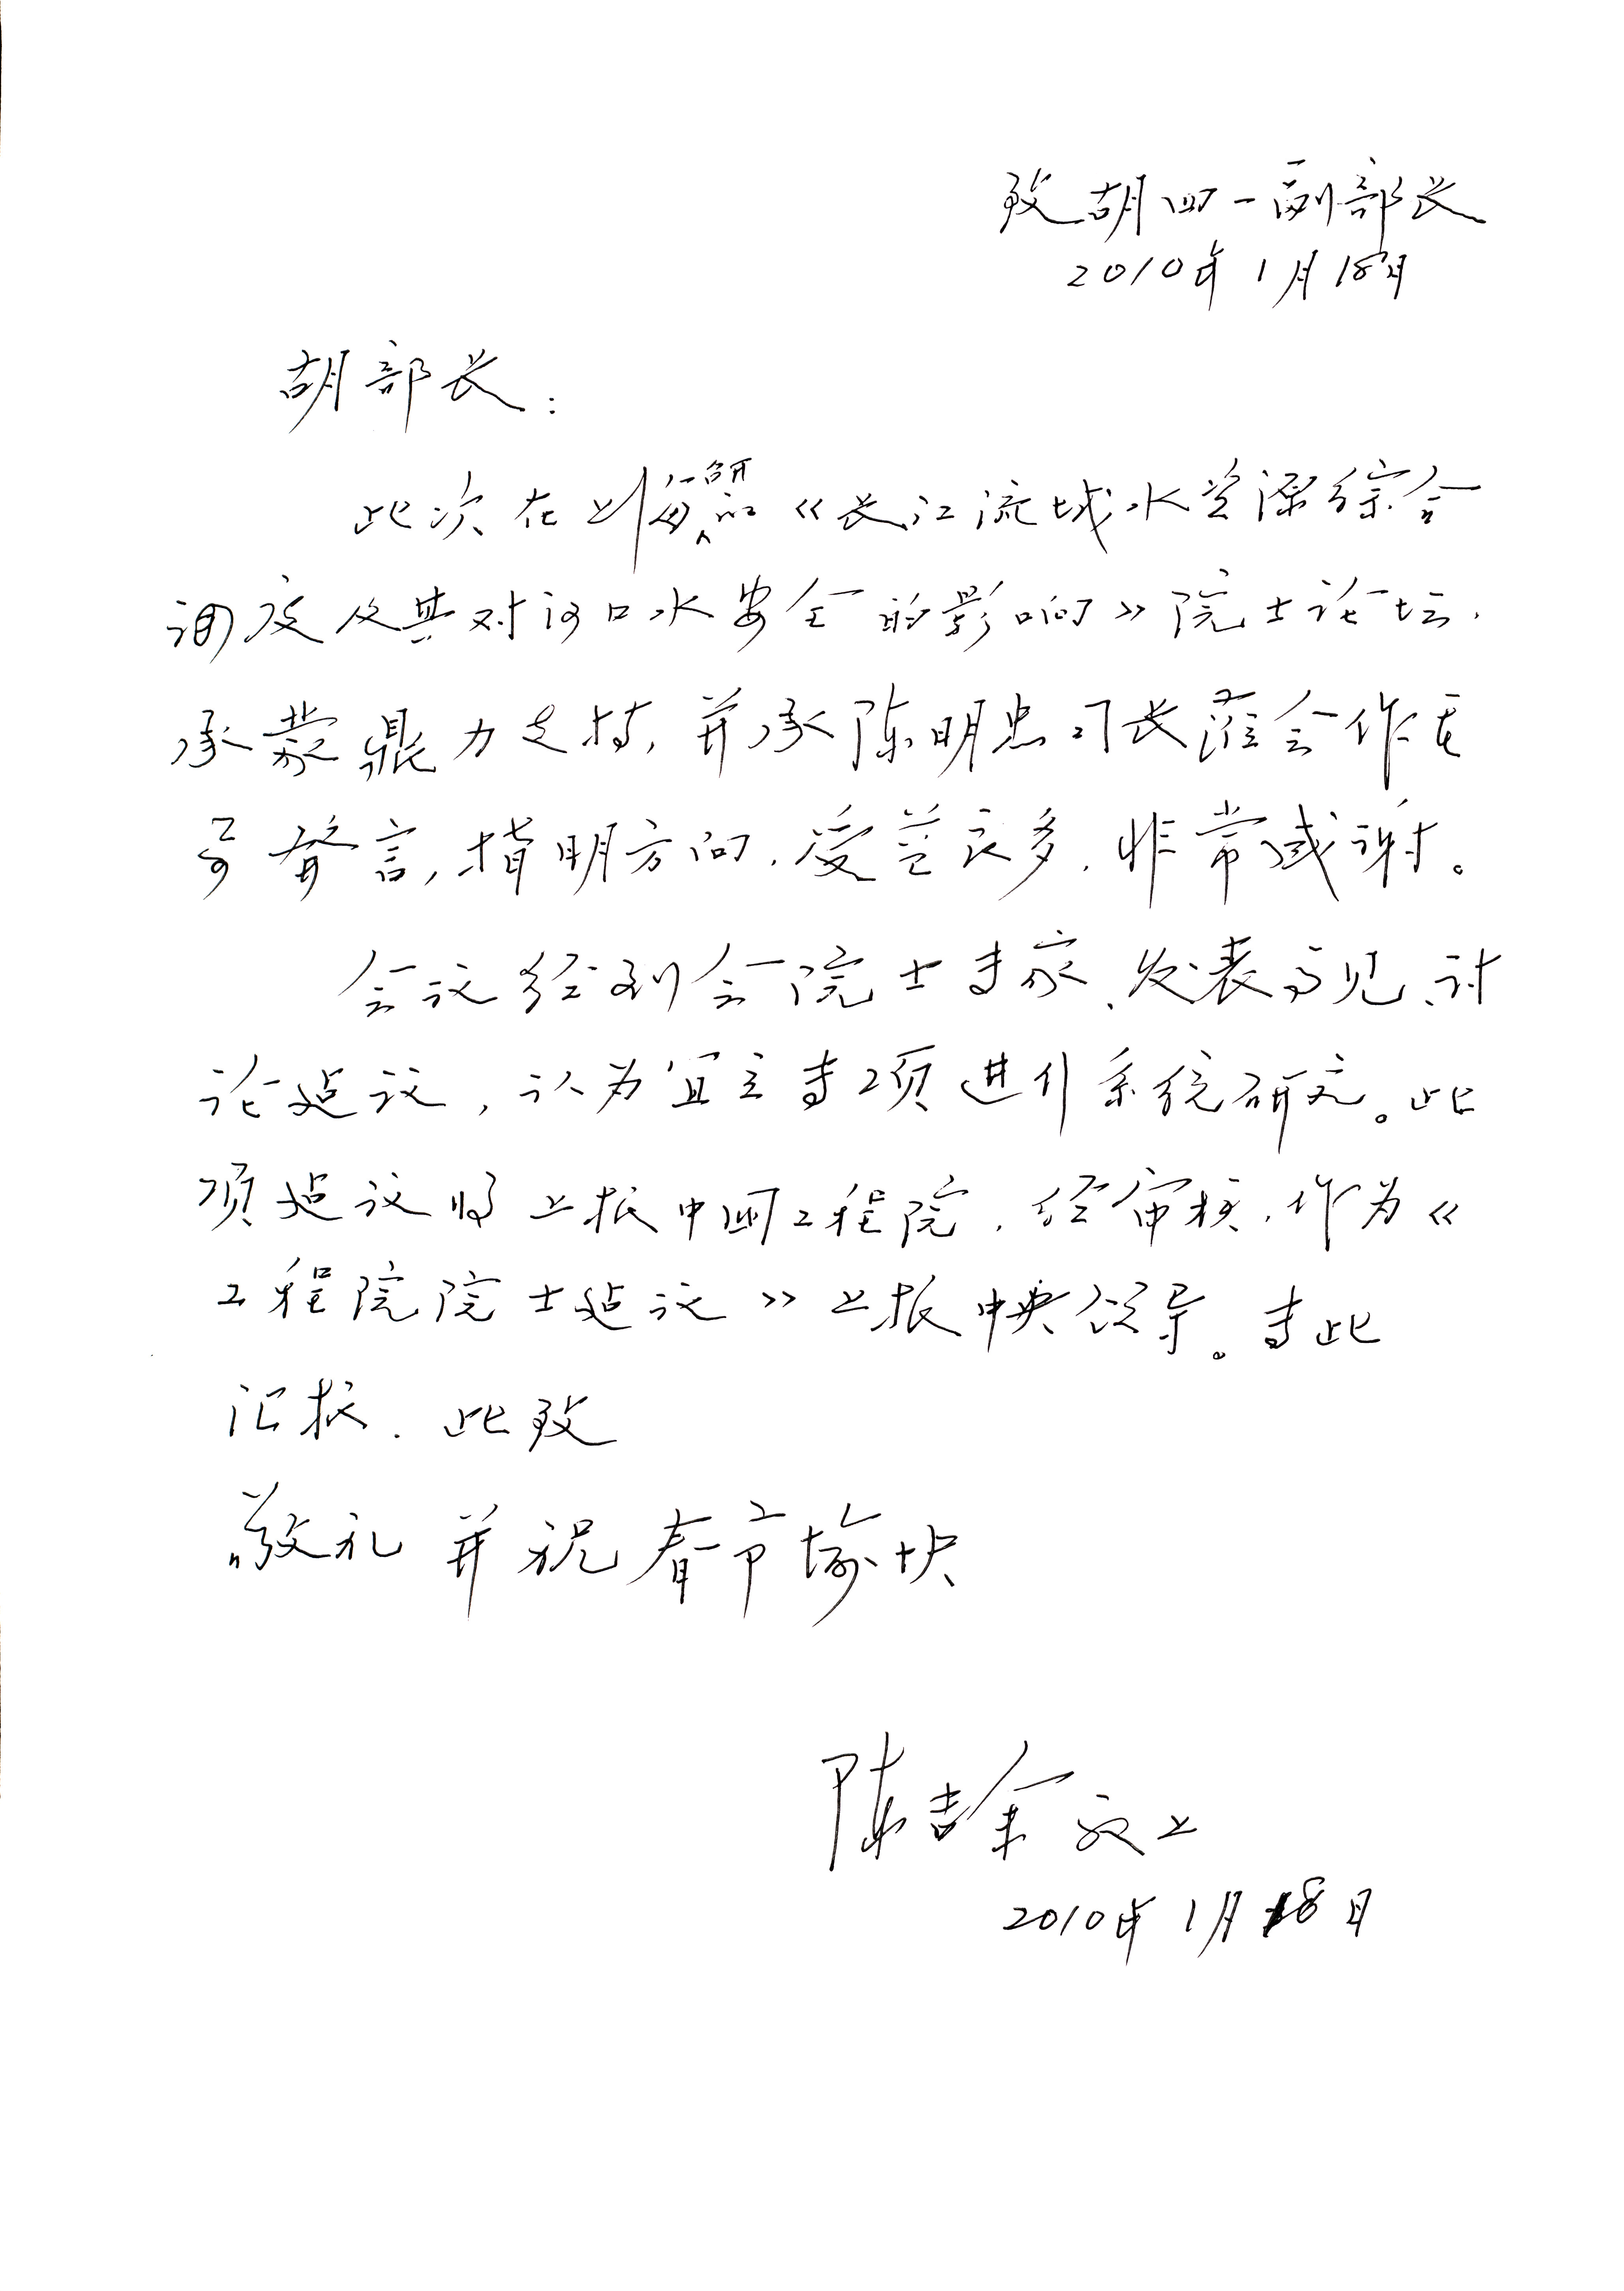 致胡四一副部长
2010年1月18日
胡部长：
此次在上海召开的《长江流域水资源综合
调度及其对河口水安全的影响》院士论坛，
承蒙鼎力支持，并承陈明忠司长莅会作重
要发言，指明方向，受益良多，非常感谢。
会议经到会院士专家、发表高见、讨
论建议，认为宜立专项进行系统研究。此
项建议将上报中国工程院，经审核，作为《
工程院院士建议》上报中央领导。专此
汇报，此致
敬礼 并祝春节愉快
陈吉余 敬上
2010年1月18日